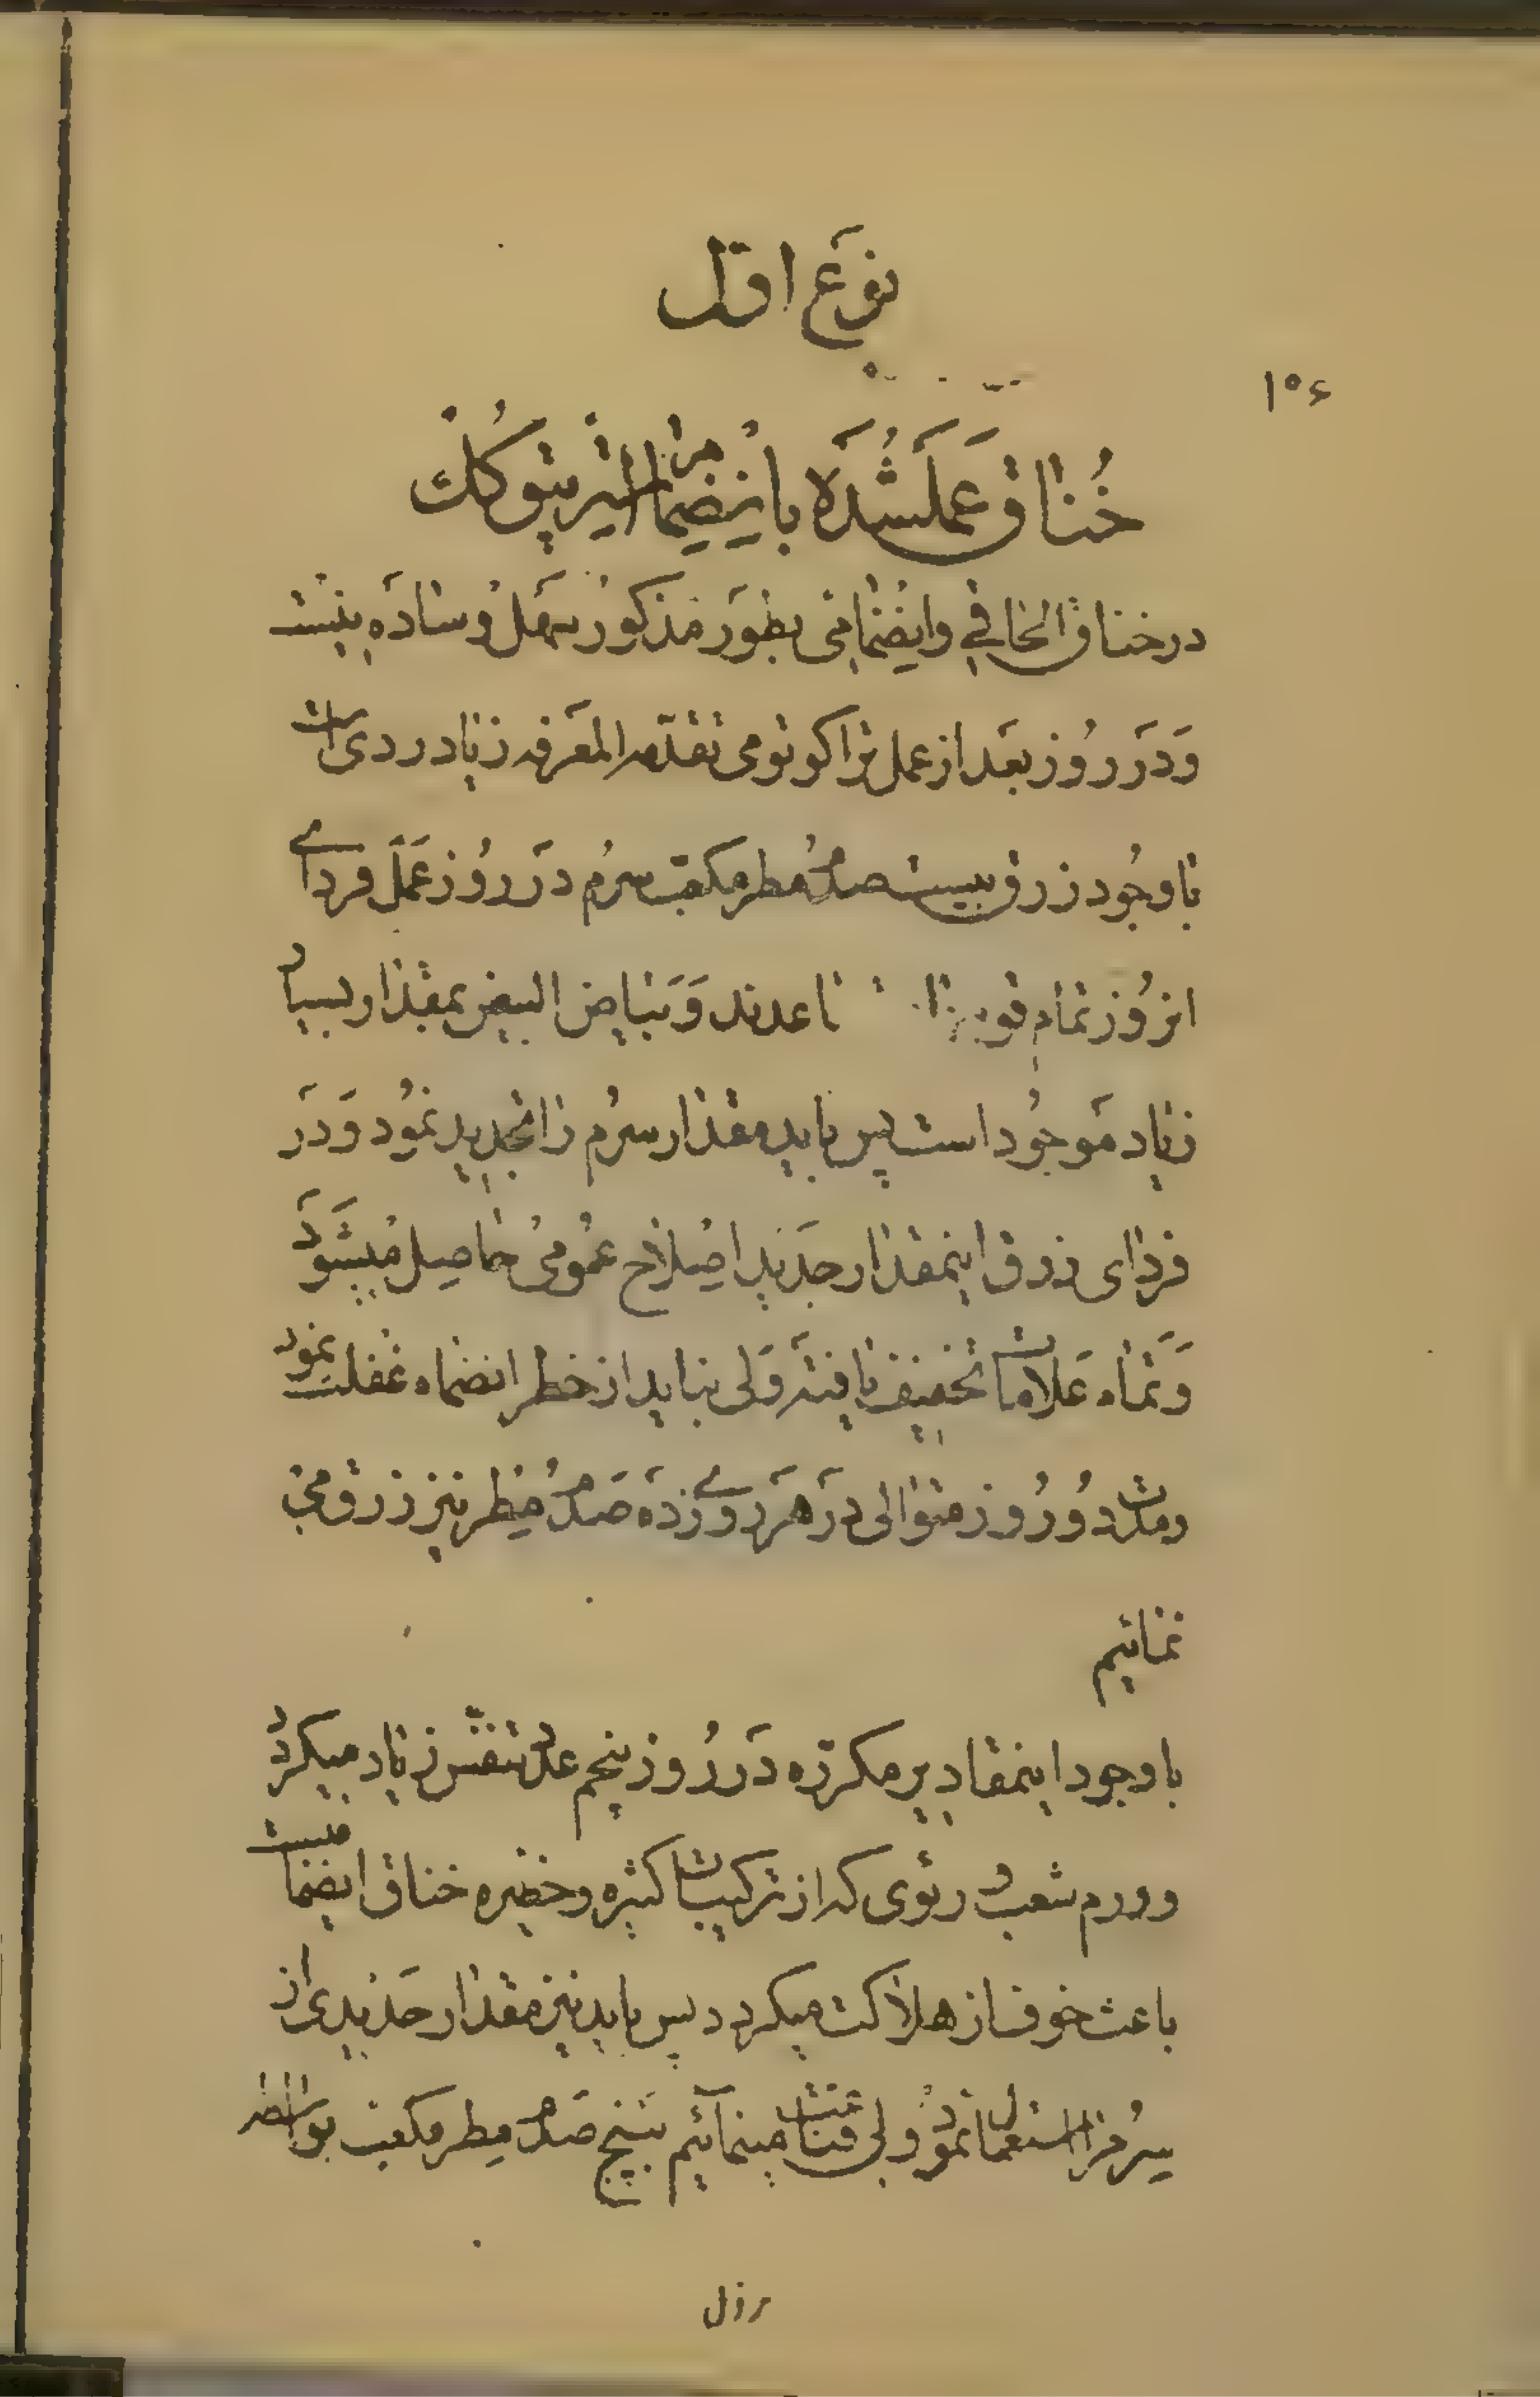 نوع اول
۱۰۶
خناق عمل شده بانضمام استرپتوکک
در خناق الحاقی و انضمامی بطور مذکور سهل و ساده نیست
و در روز بعد از عمل تراکئوتومی تقدمه المعرفه زیاد ردی است
با وجود زرق بیست صدم مطر مکعب سرم در روز عمل فردای
انروز تمام و بیاض البیض بمقدار بسیار
زیاد موجود است پس باید مقدار سرم را تجدید نمود و در
فردای زرق اینمقدار جدید اصلاح عمومی حاصل میشود
و تمام علامات تخفیف یافته ولی نباید از خطر انضمام غفلت نمود
و مدت دو روز متوالی در هر روزی ده صدم مطر نیز زرق می
نمائیم
با وجود اینمقادیر مکرره در روز پنجم عدد تنفس زیاد میگردد
و ورم شعب و ریوی که از ترکیبات کثیره و خطیره خناق انضمامیست
باعث خوف از هلاکت میگردد پس باید نیز مقدار جدیدی از
سرم را استعمال نمود ولی قناعت مینمائیم بپنج صدم مطر مکعب بواسطه
نزول